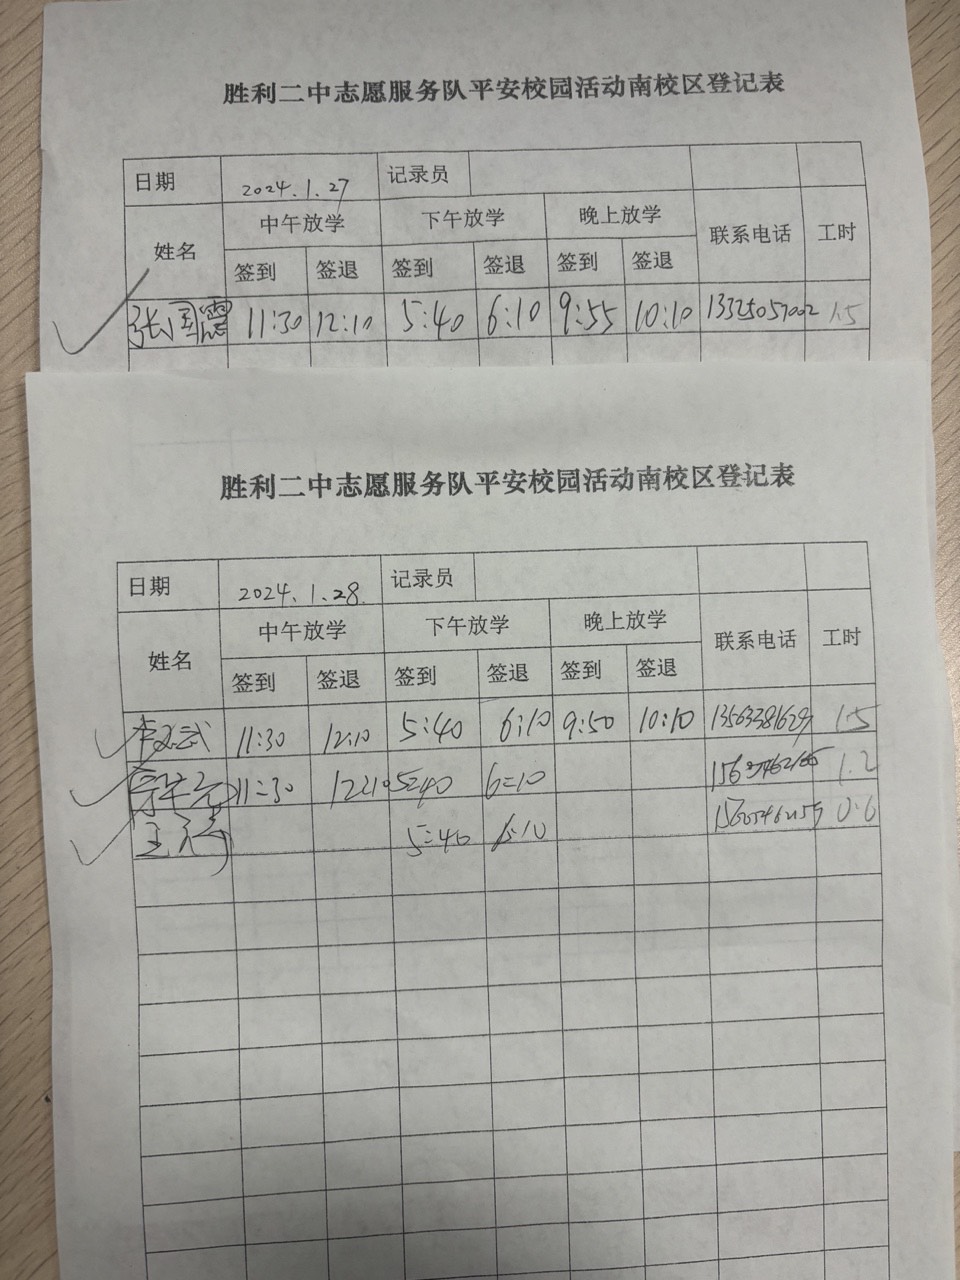 胜利二中志愿服务队平安校园活动南校区登记表
日期 2024.1.27 记录员
姓名 中午放学 下午放学 晚上放学 联系电话 工时
签到 签退 签到 签退 签到 签退
张国震 11:30 12:10 5:40 6:10 9:55 10:10 13325057002 1.5
胜利二中志愿服务队平安校园活动南校区登记表
日期 2024.1.28. 记录员
姓名 中午放学 下午放学 晚上放学 联系电话 工时
签到 签退 签到 签退 签到 签退
11:30 12:10 5:40 6:10 9:50 10:10 1.5
11:30 12:10 5:40 6:10 1.2
5:40 6:10 0.6